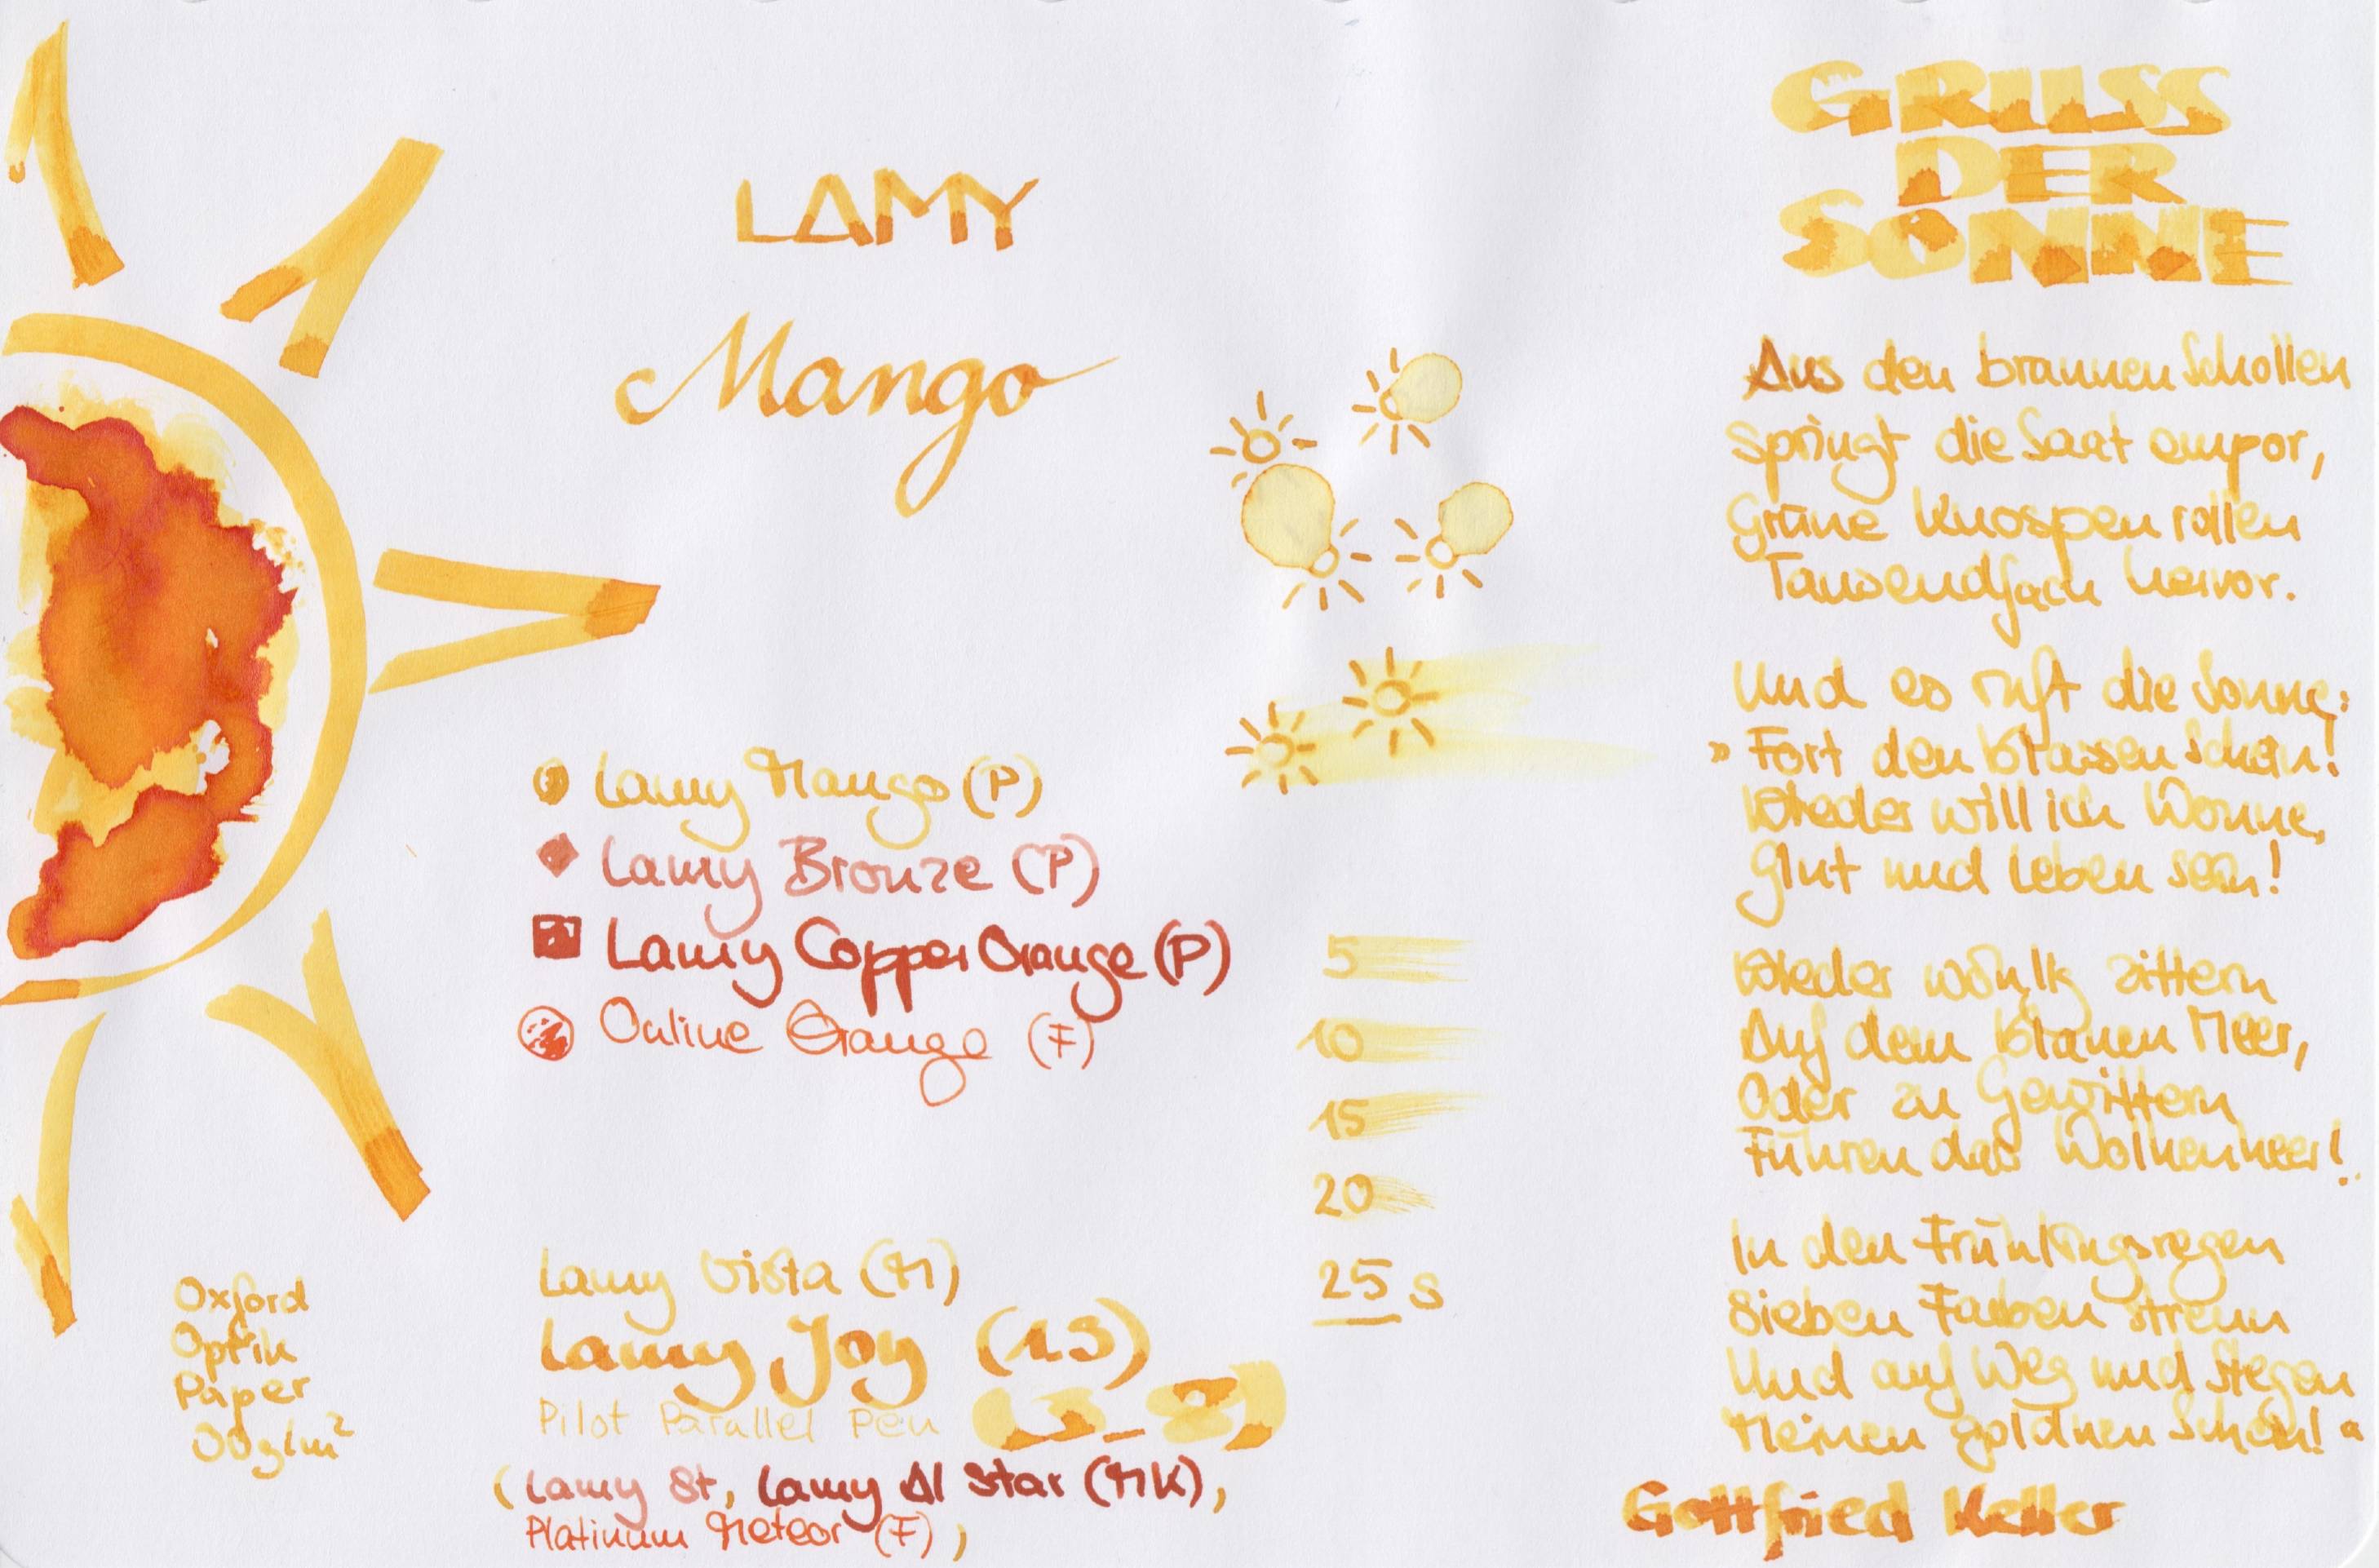 LAMY
Mango
Lamy Mango (P)
Lamy Bronze (P)
Lamy Copper Orange (P)
Online Orange (F)
5
10
15
20
25 s
Oxford
Optik
Paper
90g/m²
Lamy Vista (M)
Lamy Joy (1.5)
Pilot Parallel Pen
(Lamy St, Lamy Al Star (MK),
Platinum Meteor (F))
GRUSS
DER
SONNE
Aus den braunen Schollen
Springt die Saat empor,
Grüne Knospen rollen
Tausendfach hervor.
Und es ruft die Sonne:
»Fort den blassen Schein!
Wieder will ich Wonne,
Glut und Leben sein!
Wieder wohlig zittern
Auf dem blauen Meer,
Oder zu Gewittern
Führen das Wolkenheer!
In den Frühlingsregen
Sieben Farben streun
Und auf Weg und Stegen
Meinen goldnen Schein!«
Gottfried Keller